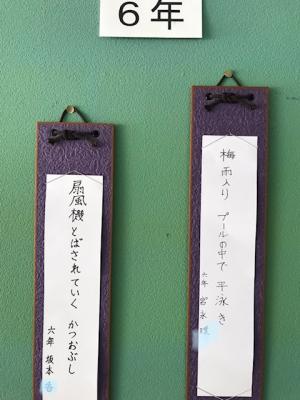 6年
梅雨入り プールの中で 平泳き
六年 宮永
扇風機 とばされていく かつおぶし
六年 坂本 杏